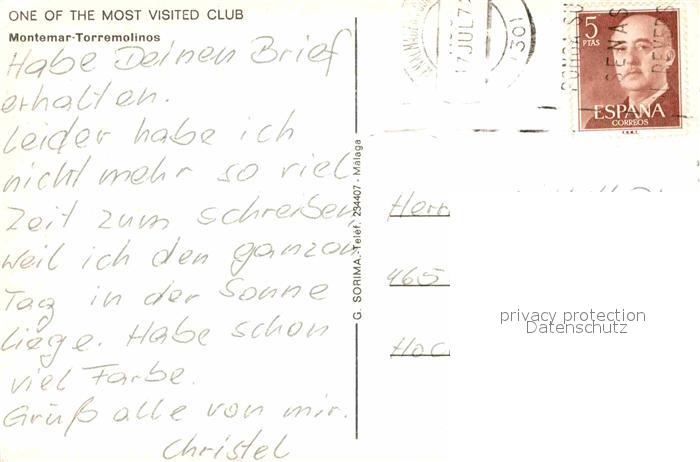 ONE OF THE MOST VISITED CLUB
Montemar-Torremolinos
Habe Deinen Brief
erhalten.
Leider habe ich
nicht mehr so viel
Zeit zum schreiben
weil ich den ganzen
Tag in der Sonne
liege. Habe schon
viel Farbe.
Grüß alle von mir.
Christel
G. SORIMA.-Teléf. 234407 - Málaga
17 JUL 7
1301
PONGA SU
SEÑAS
REVERS
5
PTAS
ESPAÑA
CORREOS
Herr
465
Hoc
privacy protection
Datenschutz